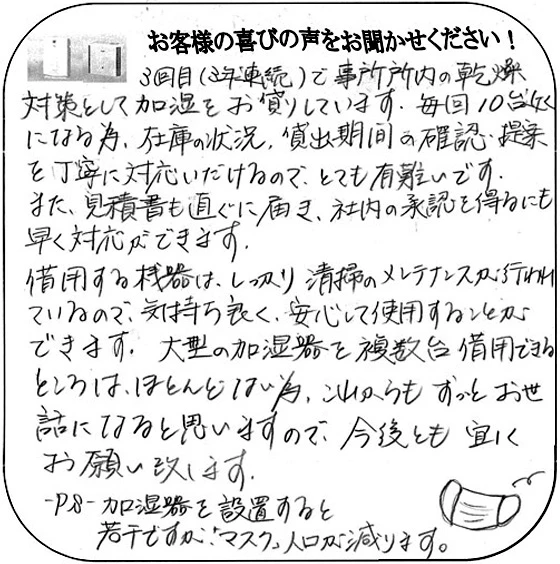 お客様の喜びの声をお聞かせください！
3回目(3年連続)で事所所内の乾燥
対策として加湿をお貸りしています。毎回10台近く
になる為、在庫の状況、貸出期間の確認・提案
を丁寧に対応いただけるので、とても有難いです。
また、見積書も直ぐに届き、社内の承認を得るにも
早く対応ができます。
借用する機器は、しっかり清掃のメンテナンスが行われ
ているので、気持ち良く、安心して使用することが
できます。大型の加湿器を複数台借用できる
ところは、ほとんどない為、これからもずっとお世
話になると思いますので、今後とも宜しく
お願い致します。
-P.S- 加湿器を設置すると
若干ですが、「マスク」人口が減ります。